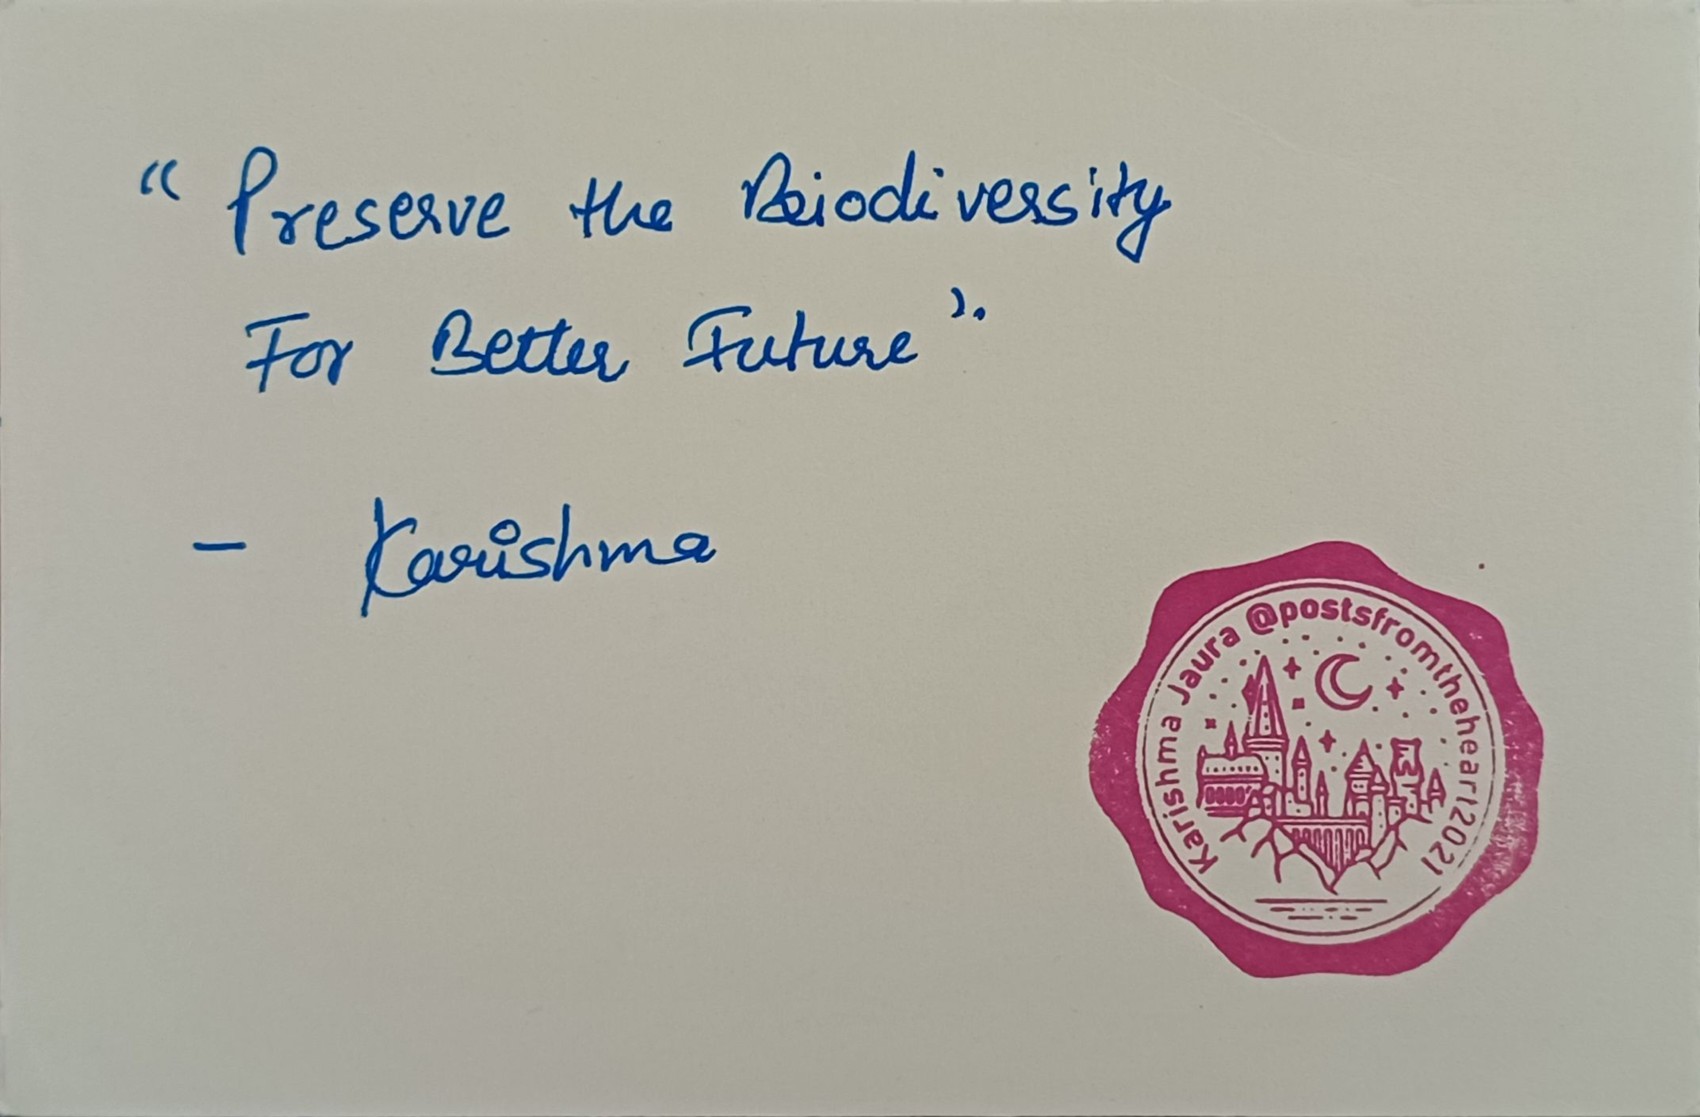 “ Preserve the Biodiversity
For Better Future ”.
- Karishma
Karishma Jaura @postsfromtheheart2021